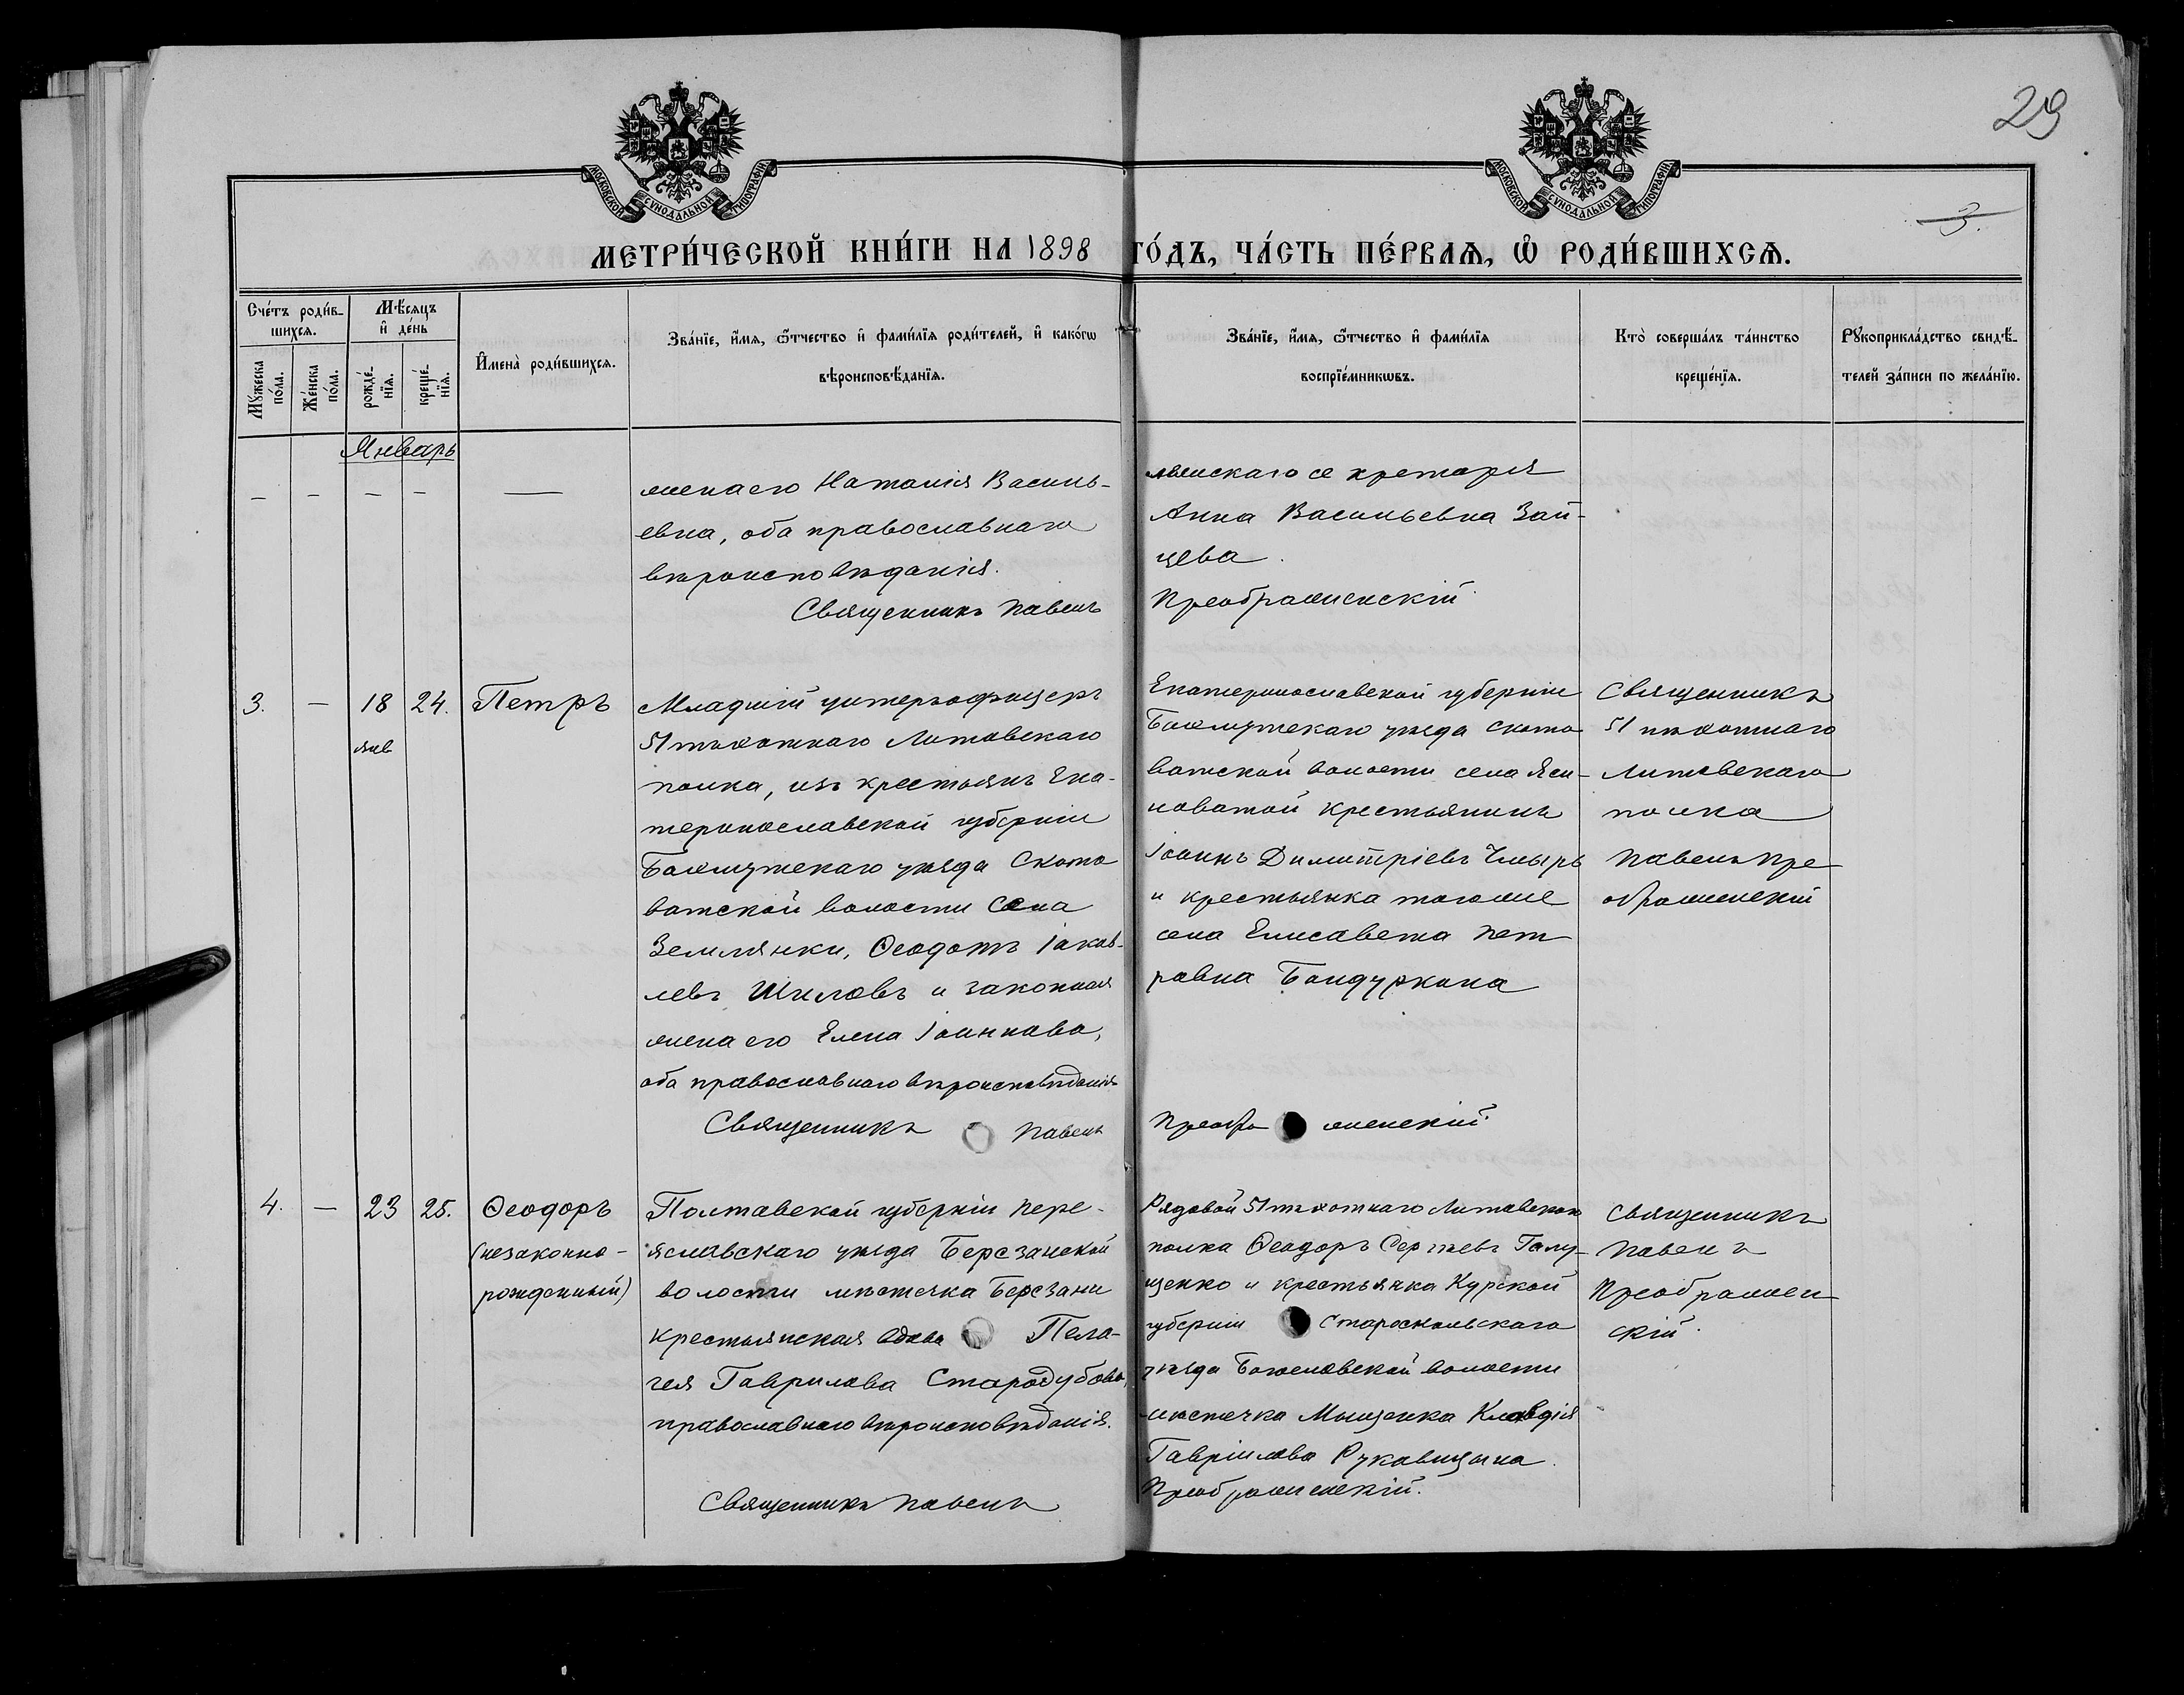 29
3.
МОСКОВСКОЙ СУНОДАЛЬНОЙ ТИПОГРАФІИ
МОСКОВСКОЙ СУНОДАЛЬНОЙ ТИПОГРАФІИ
МЕТРИ́ЧЕСКОЙ КНИ́ГИ НА 1898 ГО́ДЪ, ЧА́СТЬ ПЕ́РВАѦ, Ѡ҆ РОДИ́ВШИХСѦ.
Сче́тъ роди́в-
шихсѧ.
Мꙋ́жеска по́ла.
Же́нска по́ла.
Мѣ́сѧцъ
и҆ де́нь
рожде́-
нїѧ.
креще́-
нїѧ.
И҆мена̀ роди́вшихсѧ.
Зва́нїе, и҆́мѧ, ѻ҆́тчество и҆ фами́лїѧ роди́телей, и҆ како́гѡ
вѣроисповѣ́данїѧ.
Зва́нїе, и҆́мѧ, ѻ҆́тчество и҆ фами́лїѧ
воспрїе́мникѡвъ.
Кто̀ соверша́лъ та́инство
креще́нїѧ.
Рꙋкоприкла́дство свидѣ́-
телей за́писи по жела́нїю.
Январь
— — — — —
жена его Наталія Василь-
евна, оба православнаго
вѣроисповѣданія.
Священникъ Павелъ
секретаря
Анна Васильевна Зай-
цева.
Преображенскій.
3. — 18 24. Петръ
янв
Младшій унтеръ-офицеръ
51 пѣхотнаго Литовскаго
полка, изъ крестьянъ Ека-
теринославской губерніи
Бахмутскаго уѣзда Ското
ватской волости села
Землянки, Ѳеодотъ Іаков-
левъ Шиловъ и законная
жена его Елена Іоаннова,
оба православнаго вѣроисповѣданія
Священникъ Павелъ
Екатеринославской губерніи
Бахмутскаго уѣзда Ското
ватской волости села Яси-
новатой крестьянинъ
Іоаннъ Димитріевъ Чмырь
и крестьянка тогоже
села Елисавета Пет
ровна Бандуркина
Преображенскій.
Священникъ
51 пѣхотнаго
Литовскаго
полка
Павелъ Пре
ображенскій
4. — 23 25. Ѳеодоръ
(незаконно-
рожденный)
Полтавской губерніи Пере-
яславскаго уѣзда Березанской
волости мѣстечка Березани
крестьянская вдова Пела-
гея Гаврилова Стародубова,
православнаго вѣроисповѣданія.
Священникъ Павелъ
Рядовой 51 пѣхотнаго Литовскаго
полка Ѳеодоръ Сергѣевъ Галу-
щенко и крестьянка Курской
губерніи Староскольскаго
уѣзда волости
мѣстечка Клавдія
Гавріилова Рукавицына.
Преображенскій.
Священникъ
Павелъ
Преображен
скій.